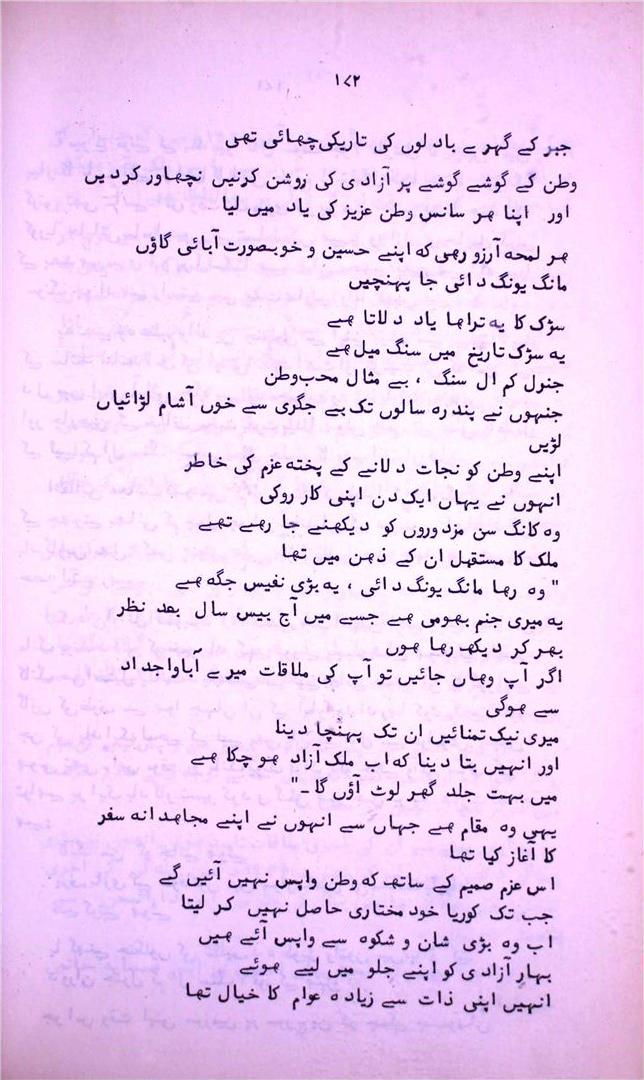 ۱۷۲
جبر کے گہرے بادلوں کی تاریکی چھائی تھی
وطن کے گوشے گوشے پر آزادی کی روشن کرنیں نچھاور کردیں
اور اپنا ہر سانس وطن عزیز کی یاد میں لیا
ہر لمحہ آرزو رہی کہ اپنے حسین و خوبصورت آبائی گاؤں
مانگ یونگ دائی جا پہنچیں
سڑک کا یہ تراہا یاد دلاتا ہے
یہ سڑک تاریخ میں سنگ میل ہے
جنرل کم ال سنگ ، بے مثال محب وطن
جنہوں نے پندرہ سالوں تک بے جگری سے خوں آشام لڑائیاں
لڑیں
اپنے وطن کو نجات دلانے کے پختہ عزم کی خاطر
انہوں نے یہاں ایک دن اپنی کار روکی
وہ کانگ سن مزدوروں کو دیکھنے جا رہے تھے
ملک کا مستقبل ان کے ذہن میں تھا
" وہ رہا مانگ یونگ دائی ، یہ بڑی نفیس جگہ ہے
یہ میری جنم بھومی ہے جسے میں آج بیس سال بعد نظر
بھر کر دیکھ رہا ہوں
اگر آپ وہاں جائیں تو آپ کی ملاقات میرے آباواجداد
سے ہوگی
میری نیک تمنائیں ان تک پہنچا دینا
اور انہیں بتا دینا کہ اب ملک آزاد ہو چکا ہے
میں بہت جلد گھر لوٹ آؤں گا ۔ "
یہی وہ مقام ہے جہاں سے انہوں نے اپنے مجاہدانہ سفر
کا آغاز کیا تھا
اس عزم صمیم کے ساتھ کہ وطن واپس نہیں آئیں گے
جب تک کوریا خود مختاری حاصل نہیں کر لیتا
اب وہ بڑی شان و شکوہ سے واپس آئے ہیں
بہارِ آزادی کو اپنے جلو میں لیے ہوئے
انہیں اپنی ذات سے زیادہ عوام کا خیال تھا